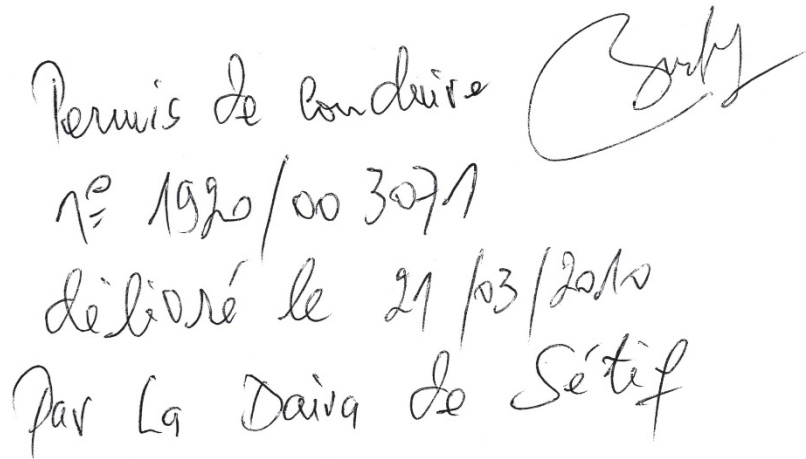 Permis de conduire
n° 1920/003071
délivré le 21/03/2010
Par La Daira de Sétif